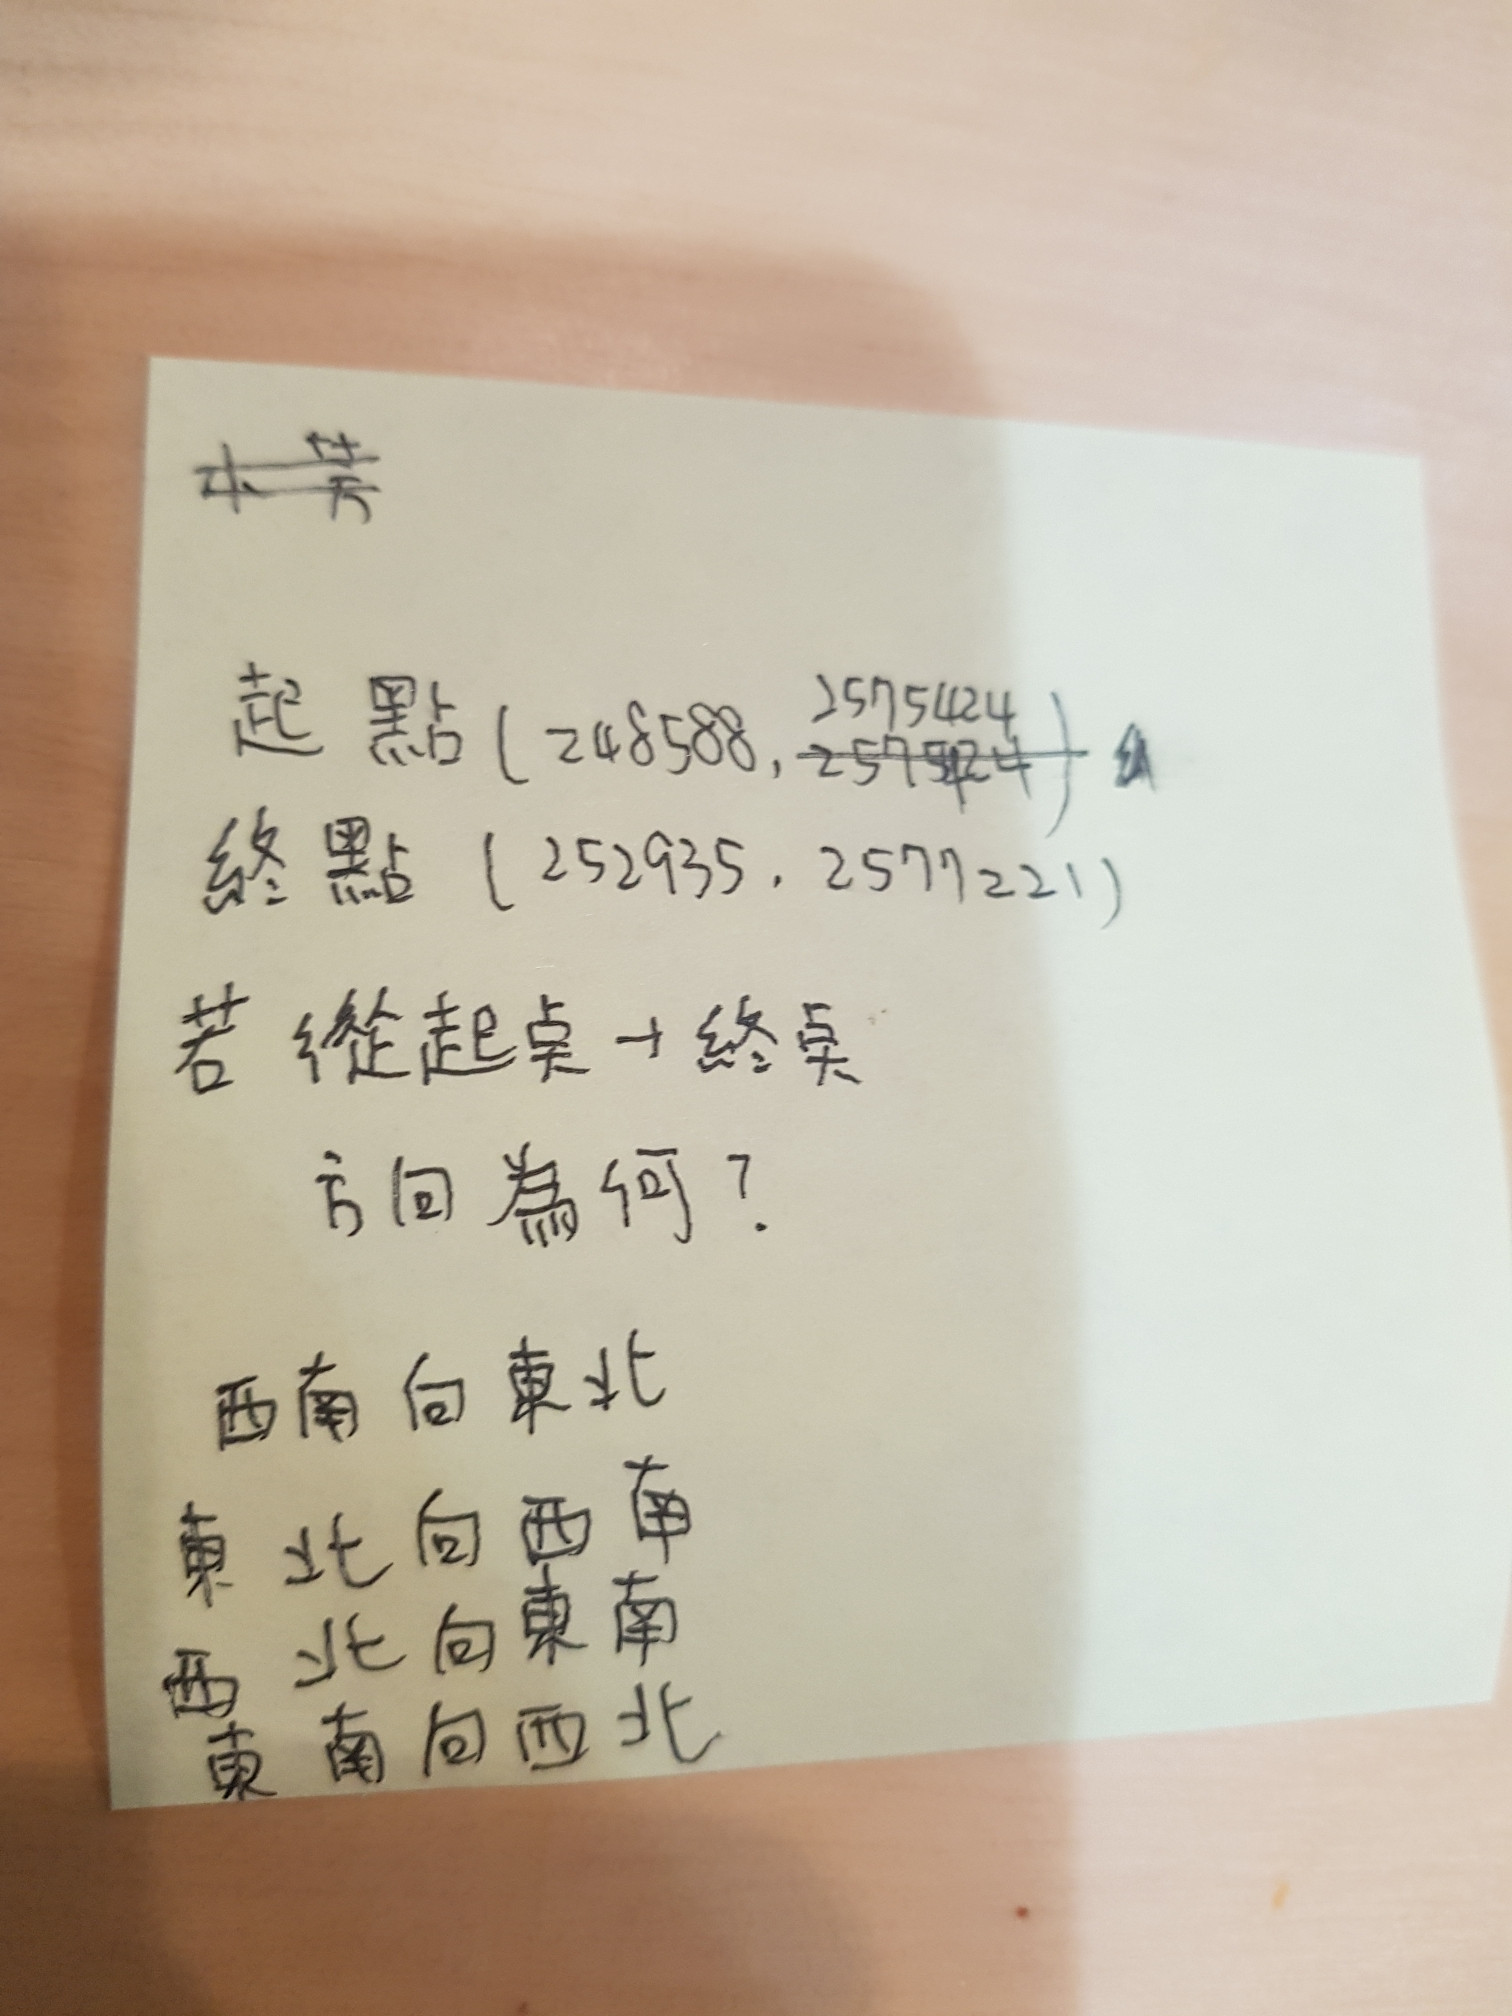 起點(248588, 2575424)
終點(252935, 2577221)
若從起点→終点
方向為何?
西南向東北
東北向西南
西北向東南
東南向西北